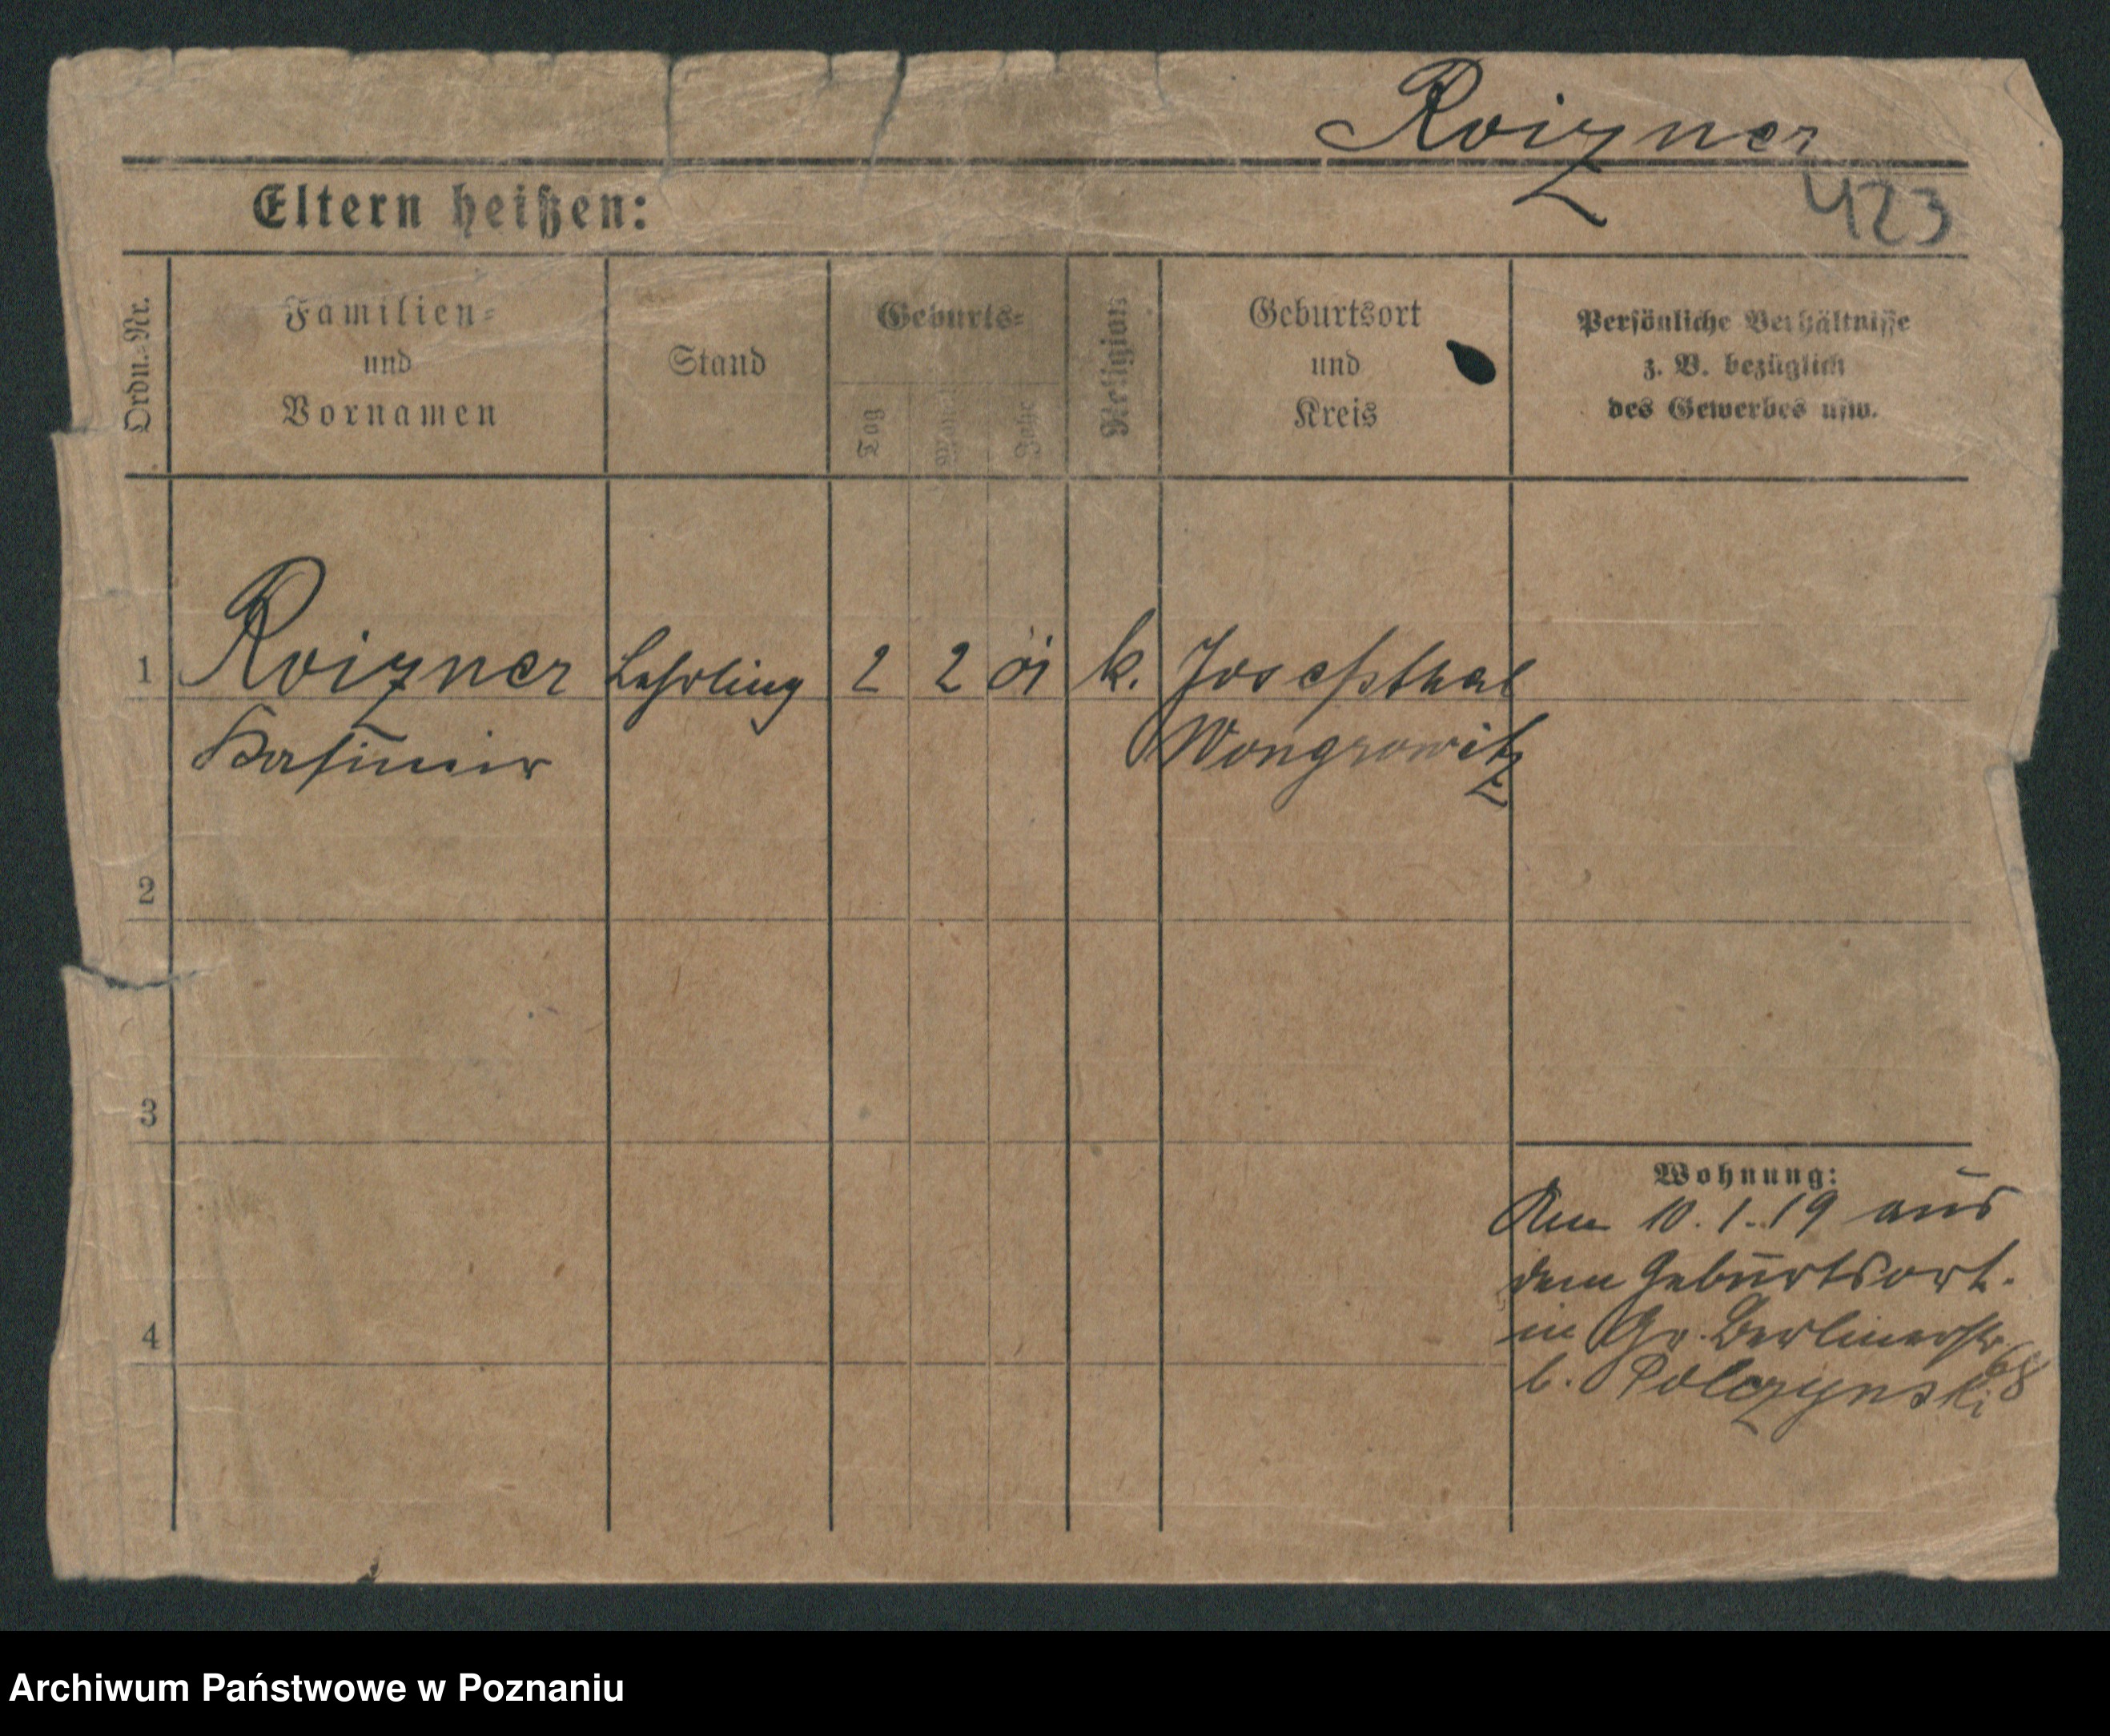 Roizner
423
Eltern heißen:
Ordn.-Nr.
Familien-
und
Vornamen
Stand
Geburts-
Tag
Monat
Jahr
Religion
Geburtsort
und
Kreis
Persönliche Verhältnisse
z. B. bezüglich
des Gewerbes usw.
1 Roizner Lehrling 2 2 01 k. Josephthal
Kasimir Wongrowitz
2
3
Wohnung:
Am 10.1.19 aus
dem Geburtsort.
in Gr. Berlinerstr
68
4
b. Polczynski
Archiwum Państwowe w Poznaniu